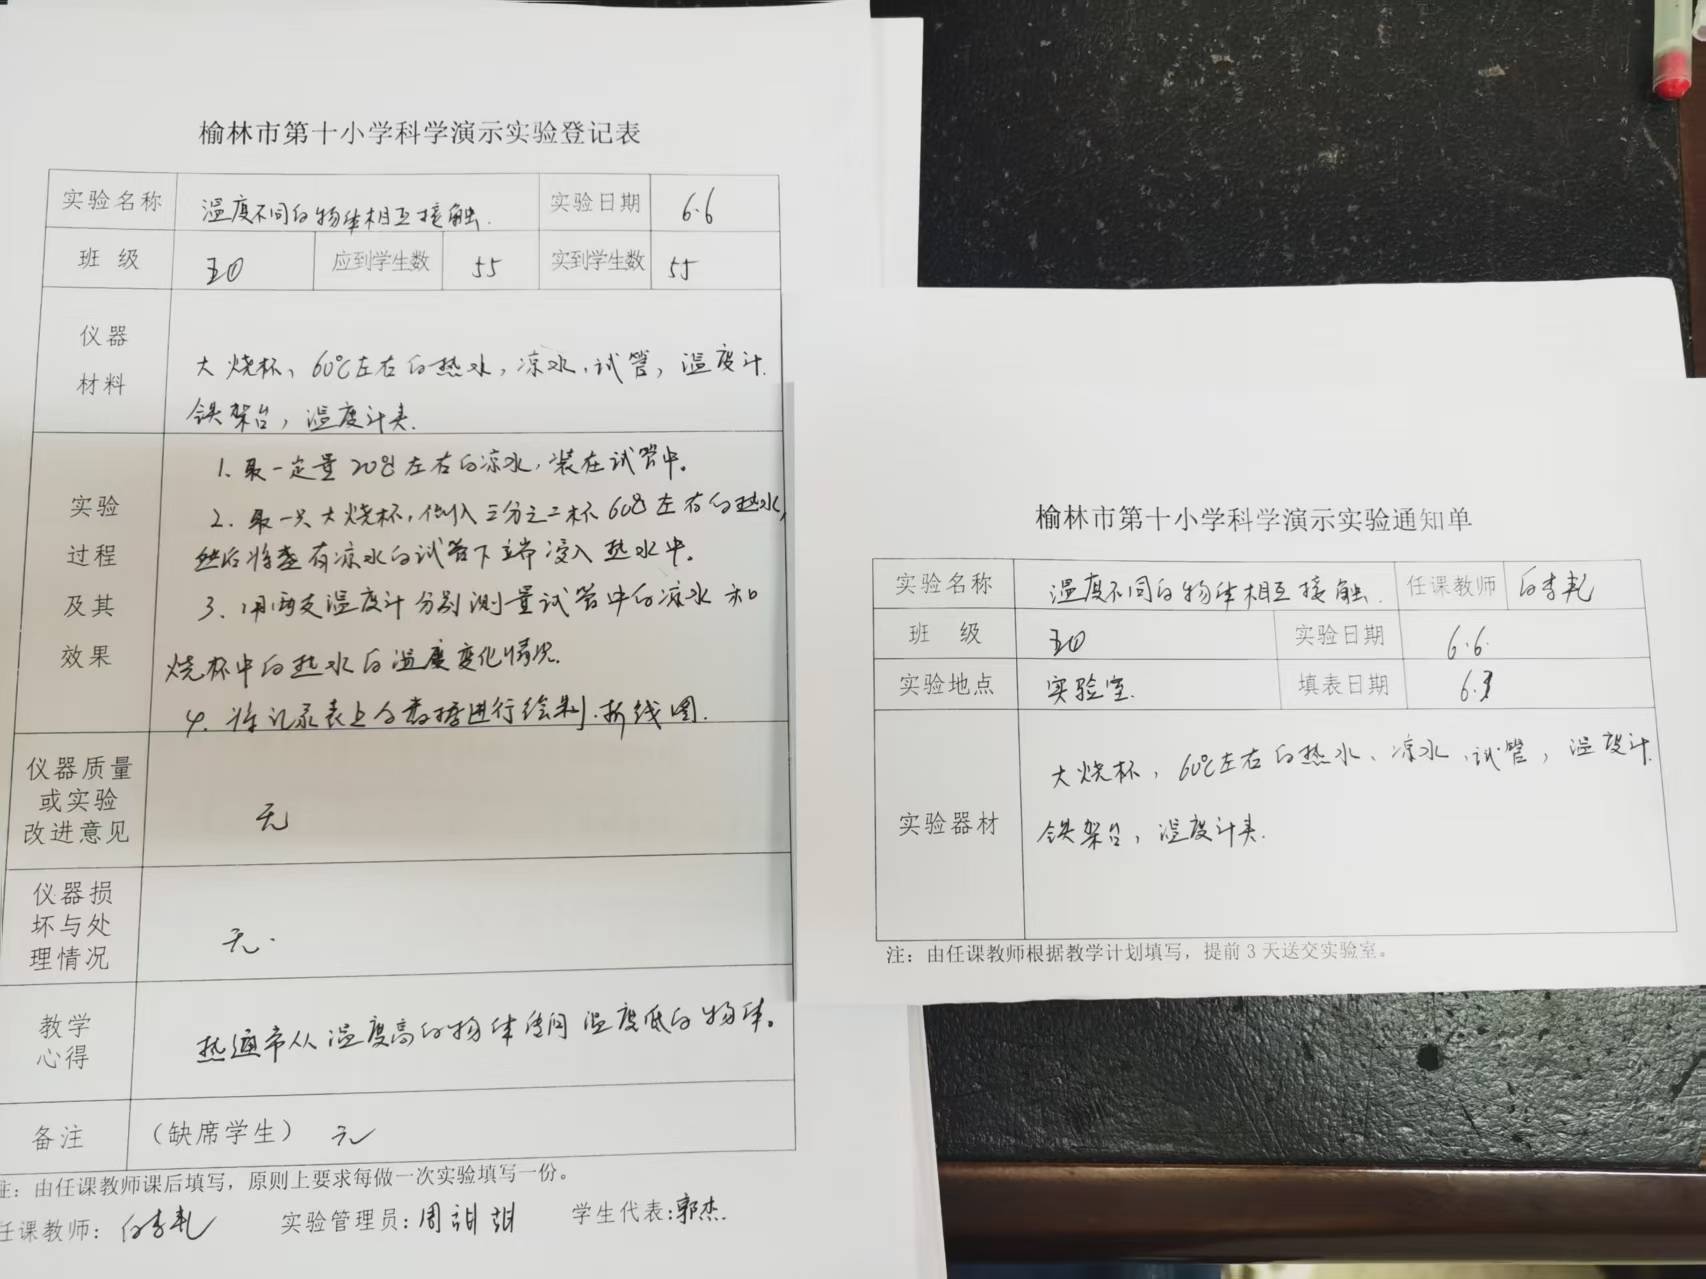 榆林市第十小学科学演示实验登记表
实验名称 温度不同的物体相互接触. 实验日期 6.6
班 级 五① 应到学生数 55 实到学生数 55
仪器
材料
大烧杯、60℃左右的热水，凉水，试管，温度计.
铁架台，温度计夹.
实验
过程
及其
效果
1. 取一定量20℃左右的凉水，装在试管中。
2. 取一只大烧杯，倒入三分之二杯60℃左右的热水，
然后将盛有凉水的试管下端浸入热水中。
3、用两支温度计分别测量试管中的凉水和
烧杯中的热水的温度变化情况.
4. 将记录表上的数据进行绘制.折线图.
仪器质量
或实验
改进意见
无
仪器损
坏与处
理情况
无.
教学
心得
热通常从温度高的物体传向温度低的物体。
备注 （缺席学生） 无
注：由任课教师课后填写，原则上要求每做一次实验填写一份。
任课教师： 实验管理员：周甜甜 学生代表：郭杰.
榆林市第十小学科学演示实验通知单
实验名称 温度不同的物体相互接触. 任课教师
班 级 五① 实验日期 6.6.
实验地点 实验室. 填表日期 6.3
实验器材
大烧杯，60℃左右的热水、凉水，试管，温度计.
铁架台，温度计夹.
注：由任课教师根据教学计划填写，提前3天送交实验室。